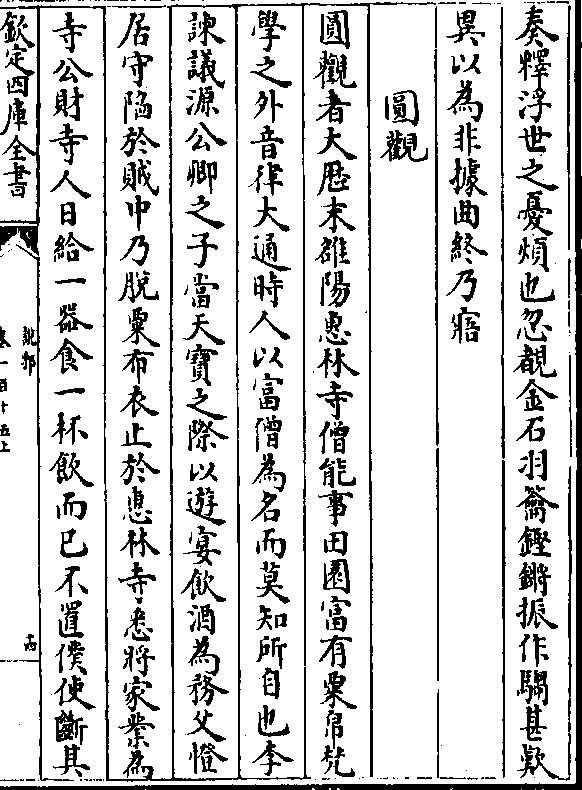 奏釋浮世之憂煩也忽覩金石羽籥鏗鏘振作騶甚歎
異以為非據曲終乃寤
圓觀
圓觀者大歴末雒陽惠林寺僧能事田園富有粟帛梵
學之外音律大通時人以富僧為名而莫知所自也李
諫議源公卿之子當天寶之際以遊宴飲酒為務父憕
居守陥於賊中乃脫粟布衣止於惠林寺悉將家業為
寺公財寺人日給一器食一杯飲而已不置僕使斷其
欽定四庫全書
說郛
卷一百十五上
十四